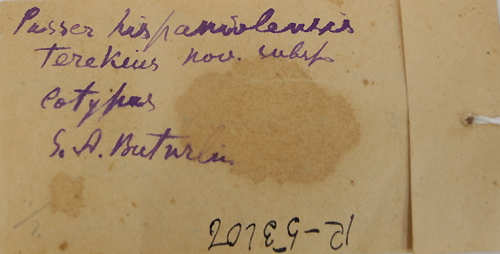 Passer hispaniolensis
terekius nov. subsp
Cotypus
S. A. Buturlin
R-53102